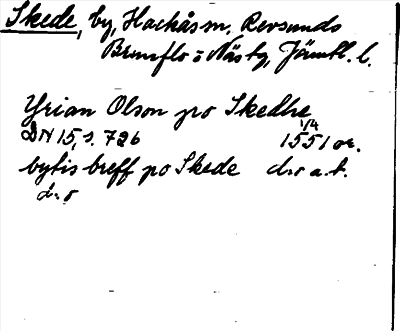 Skede, by, Hackåsm. Revsunds
Brunflo o Näs tg, Jämtl. l.
Yrian Olson po Skedhe
DN 15, s. 726 1/4 1551 or.
bytis breff po Skede d:o a.t.
d:o